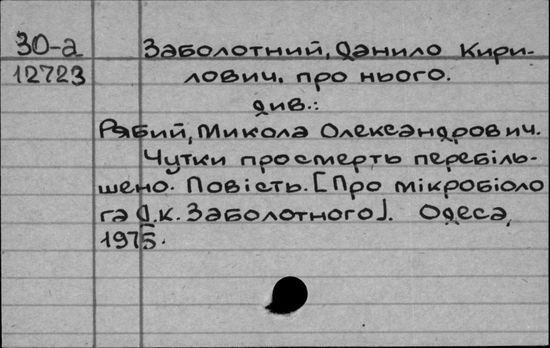 30-а Заболотний, Данило Кири-
12723 лович. про нього.
див.:
Рябий, Микола Олександрович.
Чутки просмерть перебіль-
шено. Повість. [Про мікробіоло
га Д.к. Заболотного]. Одеса,
1975.